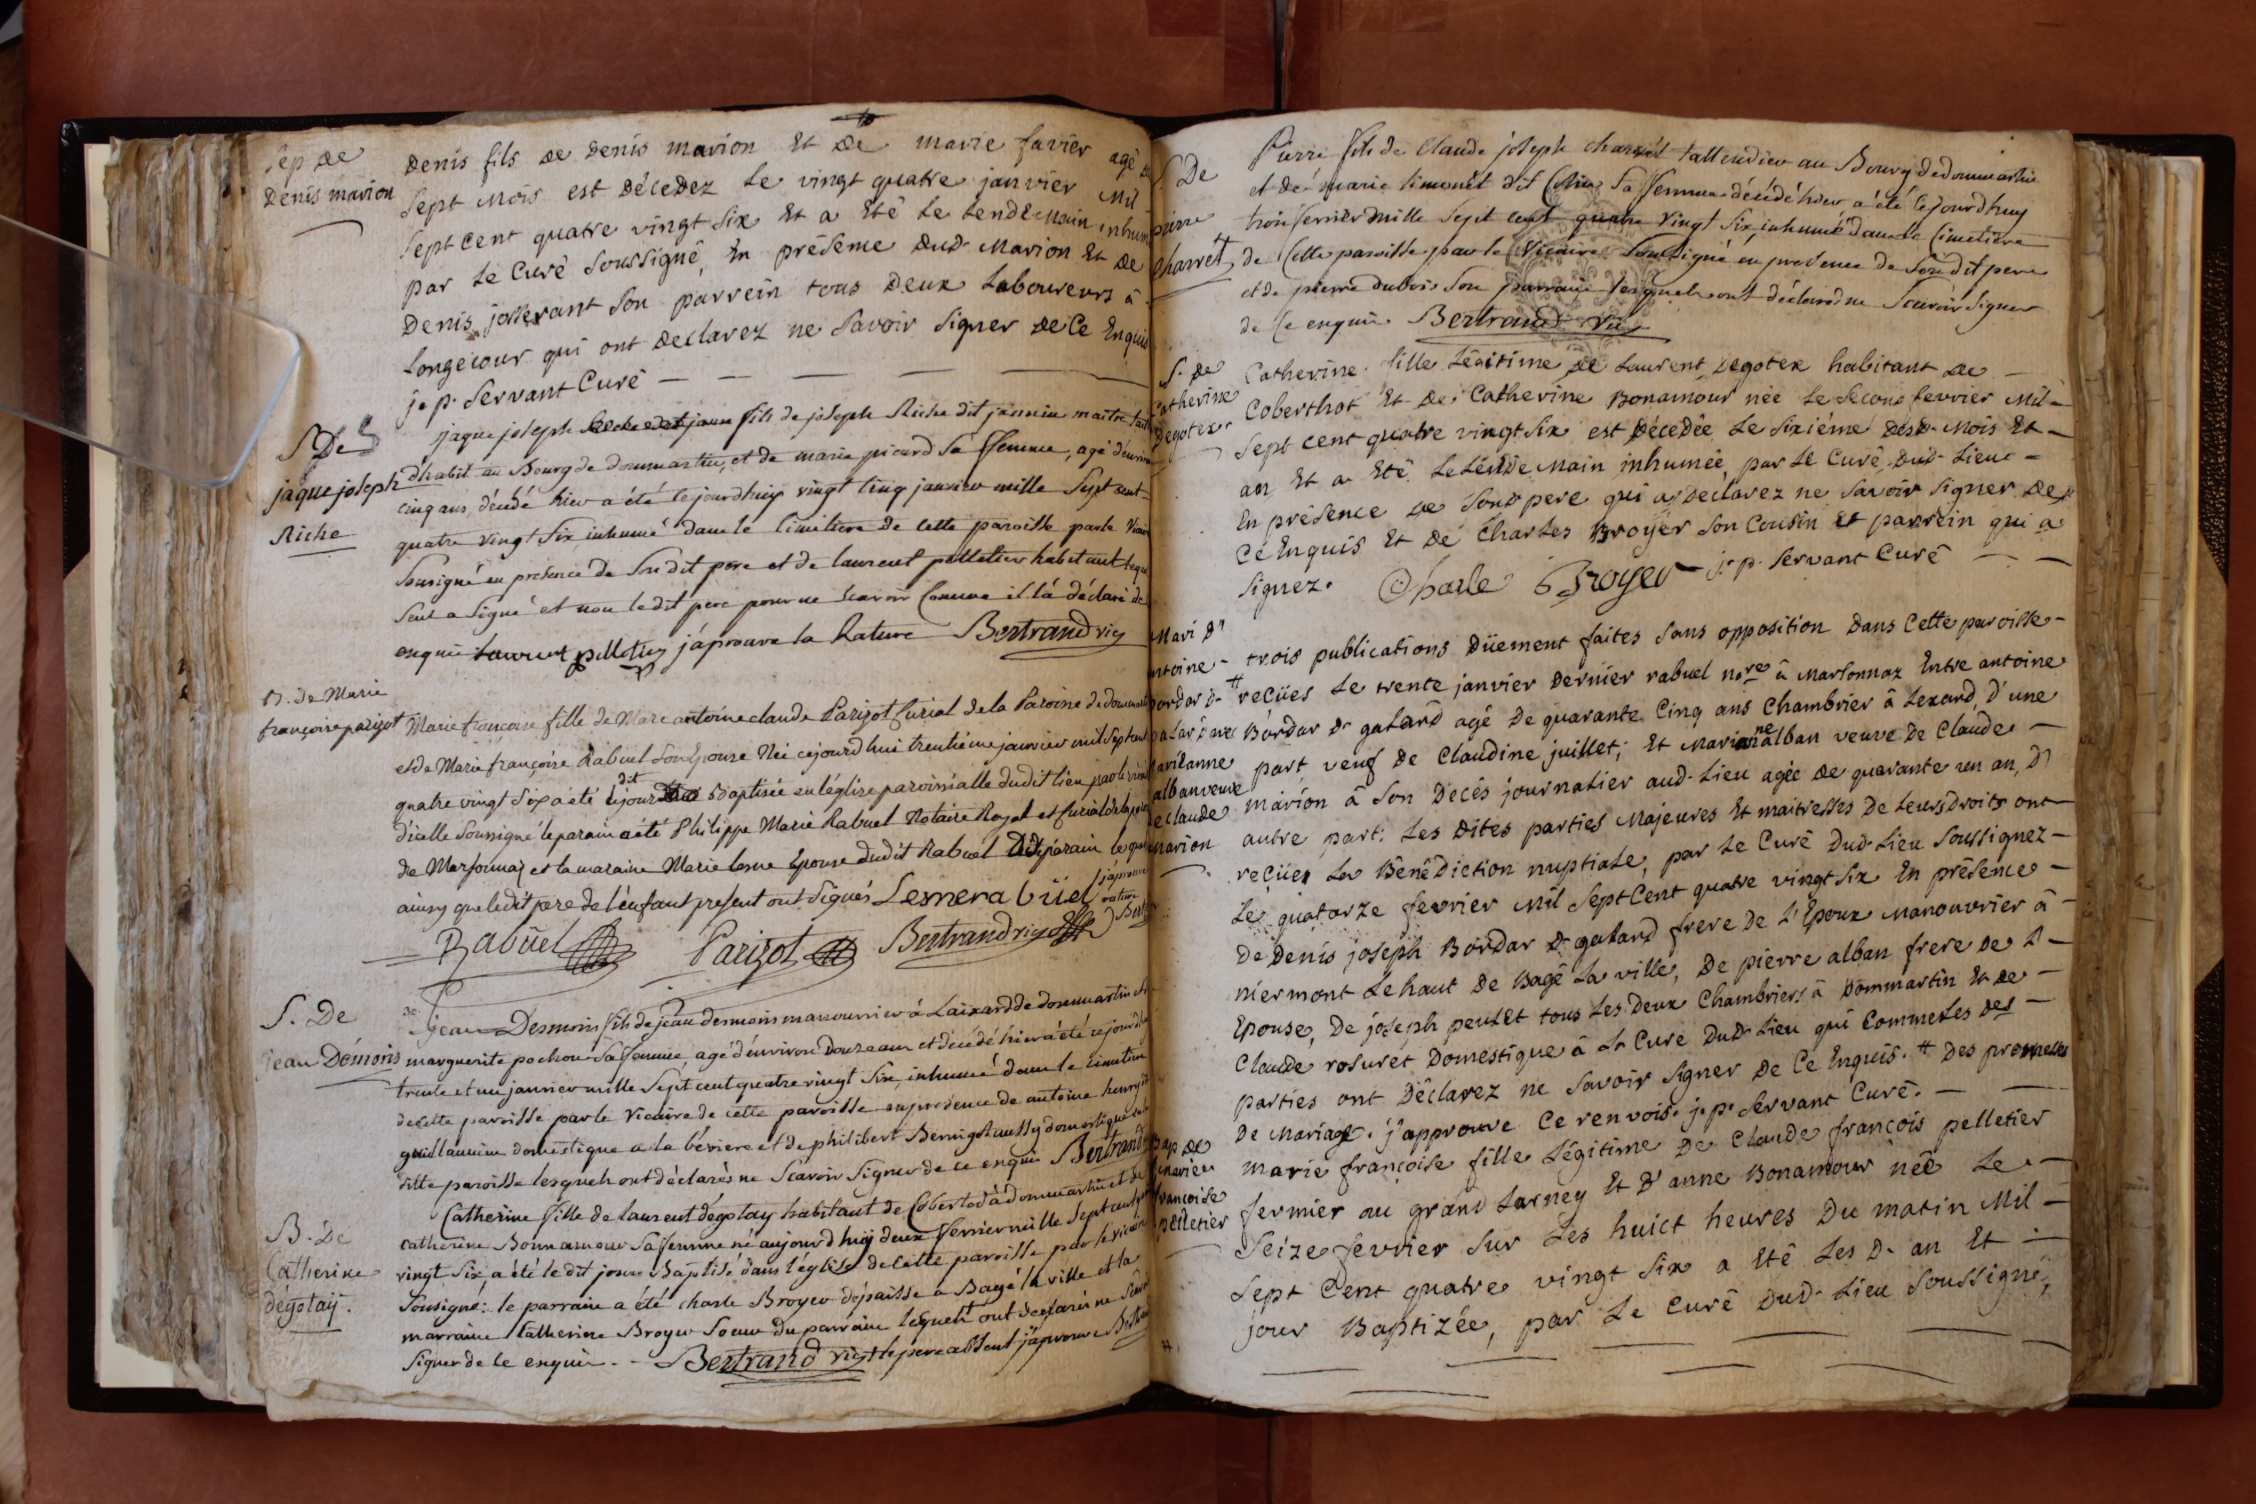 Sep De
Denis marion
Denis fils de Denis marion Et De marie favier agé de
Sept Mois est Décedez Le vingt quatre janvier Mil
Sept Cent quatre vingt Six Et a Eté Le Lendemain inhumé
par Le Curé Soussigné, En présence Dud. Marion Et De
Denis josserant Son parrein tous Deux Laboureurs à
Longecour qui ont Declarez ne Savoir Signer De Ce Enquis
j. p. Servant Curé
S De
jaque joseph
Riche
jaque joseph fils de joseph Riche dit jannin maitre
d'habit au Bourg de dommartin, et de marie picard Sa ffemme, agé d'environ
cinq ans, décédé hier a été cejourdhuy vingt cinq janvier mille Sept cent
quatre vingt Six, inhumé dans le cimetiere de cette paroisse par le
Sousigné en présence de Son dit pere et de laurent pelletier habitant
Seul a Signé et non le dit pere pour ne Scavoir comme il l'a déclaré de
enquis Laurent pelletier j'aprouve la Rature Bertrand vic
B. de Marie
françoise parizot
Marie françoise fille de Marc antoine claude Parizot Curial de la Paroisse de
et de Marie françoise Rabuel Son Epouse Née cejourd'hui trentieme janvier mil Sept cent
quatre vingt Six a été dit jour Baptisée en l'église paroissialle dudit lieu par le
d'icelle Soussigné le parain a été Philippe Marie Rabuel Notaire Royal et Curial
de Marsonnaz et la maraine Marie Lesne Epouse dudit Rabuel parain
ainsy que le dit pere de l'enfant présent ont Signés Lesne rabüel
Rabüel Parizot Bertrand vic
S. De
jean Démoris
jean Desmoris fils de jean desmoris manouvrier à Laixard de dommartin
marguerite pochon Sa ffemme, agé d'environ Douze ans et décédé hier a été cejourdhuy
trente et un janvier mille Sept cent quatre vingt Six, inhumé dans le Cimetiere
de cette paroisse par le vicaire de cette paroisse en présence de antoine
guillaumin domestique a la béviere et de philibert aussy domestique
cette paroisse lesquels ont déclarés ne Scavoir Signer de ce enquis Bertrand
B. De
Catherine
dégolaÿ.
Catherine fille de laurent dégolay habitant de à dommartin et de
catherine Bonnamour Sa femme né aujourd'huy deux fevrier mille Sept cent
vingt Six, a été le dit jour Baptisé dans l'église de cette paroisse par le vicaire
Sousigné: le parrain a été charle Broyer de Bagé la ville et la
marraine Catherine Broyer Soeur du parrain lesquels ont declarés ne
Signer de ce enquis. Bertrand vic le pere absent j'aprouve
S. De
pierre
Charret
Pierre fils de Claude joseph au Bourg de dommartin
et de marie dit Sa ffemme décédé hier a été cejourdhuy
trois fevrier mille Sept cent quatre vingt Six, inhumé dans le Cimetiere
de Cette paroisse par le vicaire Soussigné en présence de Son dit pere
et de pierre dubois Son parrain lesquels ont déclaré ne Scavoir Signer
de Ce enquis. Bertrand vic
S. De
Catherine
Degotex
Catherine fille Légitime de Laurent Degotex habitant De
Coberthot Et De Catherine Bonamour née Le Second fevrier Mil
Sept cent quatre vingt Six est Décedée Le Sixiéme Desd. Mois Et
an Et a Eté Le Lendemain inhumée, par Le Curé Dud. Lieu
En présence De Sond pere qui a Declarez ne Savoir Signer De
Ce Enquis Et De Charles Broyer Son Cousin Et parrein qui a
Signez. Charle Broyer j. p. Servant Curé
antoine
Bordar D.
galard
marianne
alban veuve
de claude
marion
trois publications Düement faites Sans opposition Dans Cette paroisse
# reçües Le trente janvier Dernier rabuel nore à Marsonnax Entre antoine
Bordar Dt galard agé De quarante Cinq ans Chambrier à Lexard, D'une
part veuf De Claudine juillet; Et Marianne alban veuve De Claude
marion à Son Decés journalier aud. Lieu agée De quarante un an, D'
autre part: Les Dites parties Majeures Et maitresses De Leurs Droits ont
reçües La Bénédiction nuptiale, par Le Curé Dud. Lieu Soussignez
Le quatorze fevrier Mil Sept Cent quatre vingt Six En présence
De Denis joseph Bordar Dt galard frere De L'Epoux Manouvrier à
niermont Le haut De Bagé La ville, De pierre alban frere De L'
Epouse, De joseph peulet tous Les Deux Chambriers à Dommartin Et De
Claude rosuret Domestique à La Cure Dud. Lieu qui Comme Les Des
parties ont Déclarez ne Savoir Signer De Ce Enquis. # Des promesses
De Mariage. j'approuve Ce renvois. j. p. Servant Curé.
Bap. De
marie
françoise
pelletier
marie françoise fille Légitime De Claude françois pelletier
fermier au grand Larney Et D'anne Bonamour née Le
Seize fevrier Sur Les huict heures Du matin Mil
Sept Cent quatre vingt Six a Eté Les D. an Et
jour Baptizée, par Le Curé Dud. Lieu Soussigné,